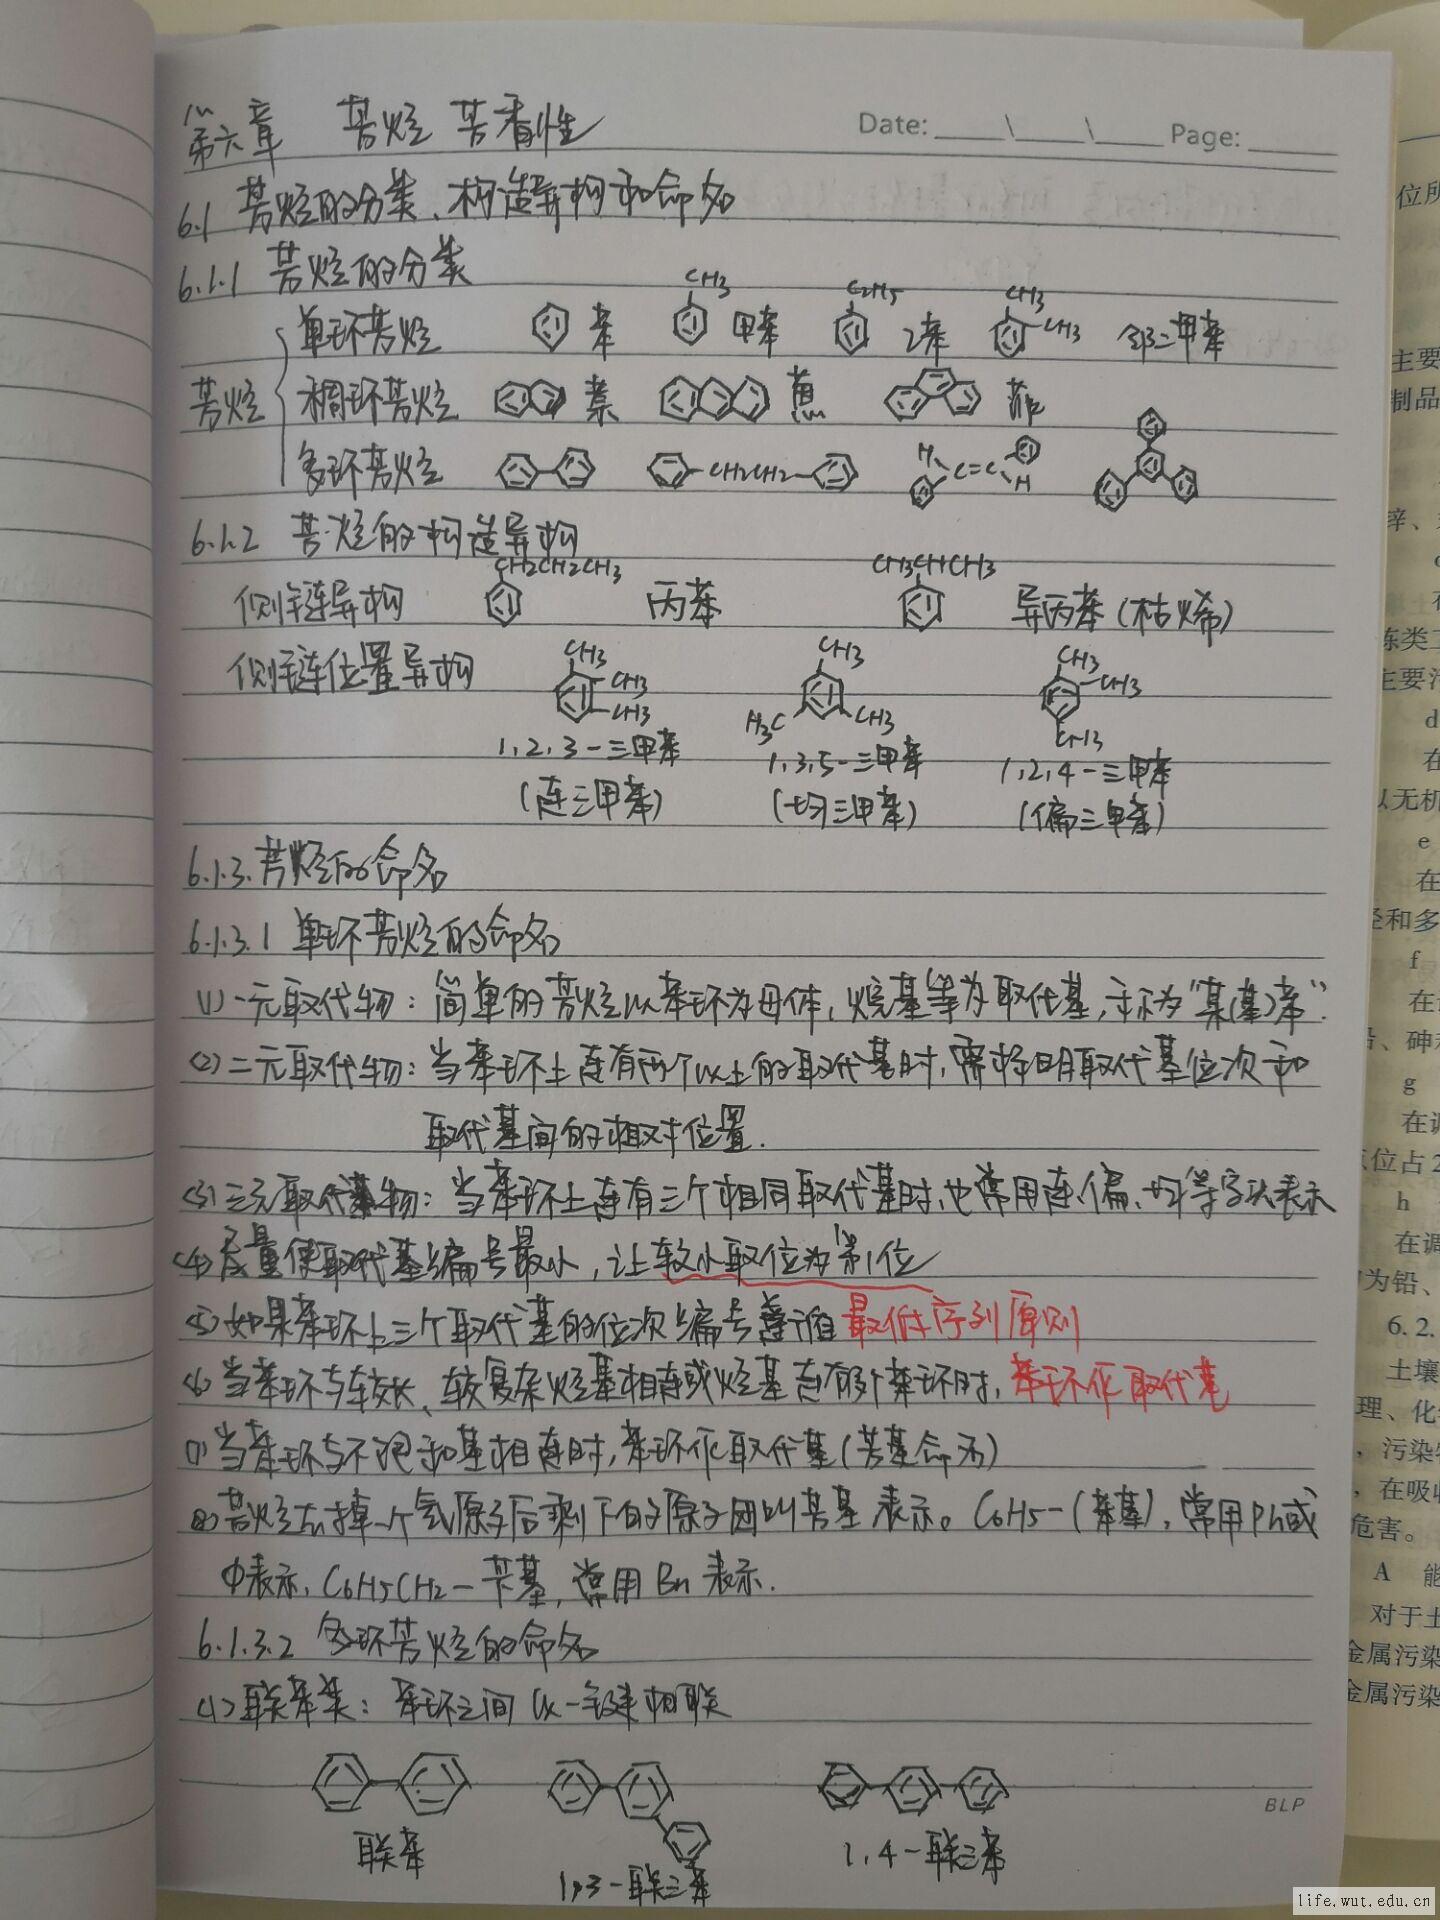 第六章 芳烃 芳香性
Date: \ \ Page:
6.1 芳烃的分类、构造异构和命名
6.1.1 芳烃的分类
CH3 C2H5 CH3
单环芳烃 苯 甲苯 乙苯 CH3 邻二甲苯
芳烃 稠环芳烃 萘 蒽 菲
多环芳烃 CH2CH2 H C=C H
6.1.2 芳烃的构造异构
CH2CH2CH3 CH3CHCH3
侧链异构 丙苯 异丙苯(枯烯)
侧链位置异构 CH3 CH3 CH3
CH3 CH3
CH3 H3C CH3 CH3
1,2,3-三甲苯 1,3,5-三甲苯 1,2,4-三甲苯
(连三甲苯) (均三甲苯) (偏三甲苯)
6.1.3.芳烃的命名
6.1.3.1 单环芳烃的命名
(1)一元取代物:简单的芳烃以苯环为母体,烷基等为取代基,称为“某(基)苯”.
(2)二元取代物:当苯环上连有两个以上的取代基时,需标明取代基位次和
取代基间的相对位置.
(3)三元取代物:当苯环上连有三个相同取代基时,也常用连、偏、均等字头表示
(4)尽量使取代基编号最小,让较小取位为第1位
(5)如果苯环上三个取代基的位次编号遵循最低序列原则
(6)当苯环与较长、较复杂烃基相连或烃基连有多个苯环时,苯环作取代基
(7)当苯环与不饱和基相连时,苯环作取代基(芳基命名)
(8)芳烃去掉一个氢原子后剩下的原子团叫芳基表示。C6H5-(苯基),常用Ph或
Φ表示,C6H5CH2-苄基,常用Bn表示.
6.1.3.2 多环芳烃的命名
(1)联苯类:苯环之间以一键相联
BLP
联苯 1,3-联三苯 1,4-联三苯
位所
主要
制品
锌、
d
在
以无机
e
在
f
在
砷
g
在
位占2
h
在调
为铅、
6.2.
土壤
理、化
,污染
,在吸收
危害。
A 能
对于土
金属污染
金属污染
life.wut.edu.cn